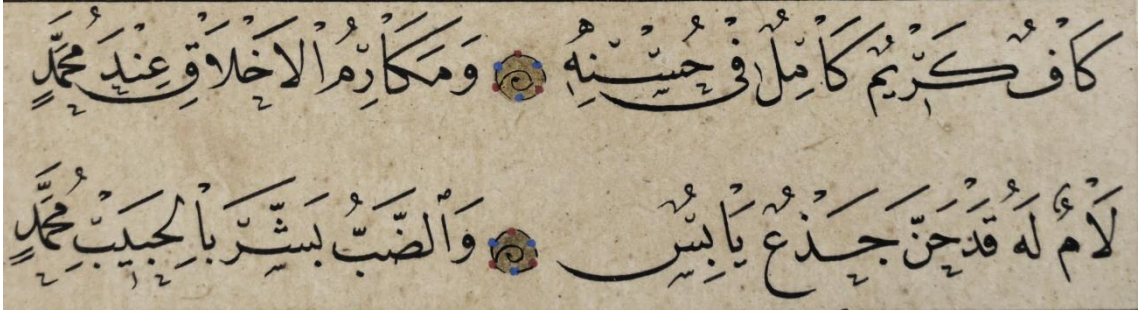 كَافٌ كَرِيمٌ كَامِلٌ فِي حُسْنِهِ وَمَكَارِمُ الْاَخْلَاقِ عِنْدَ مُحَمَّدٍ
لَامٌ لَهُ قَدْ حَنَّ جَذْعٌ يَابِسٌ وَالضَّبُّ بَشَّرَ بِالْحَبِيبِ مُحَمَّدٍ